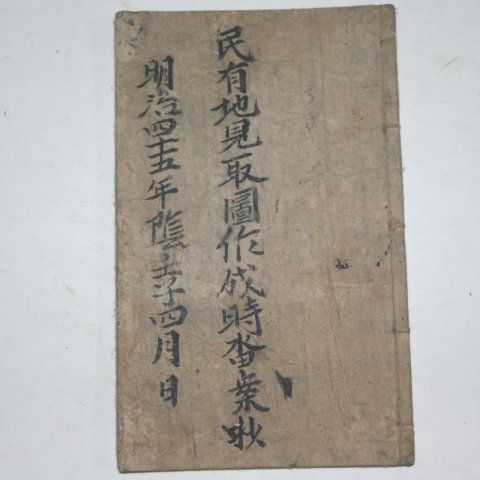 民有地見取圖作成時畓案
明治四十五年陰壬子四月 日